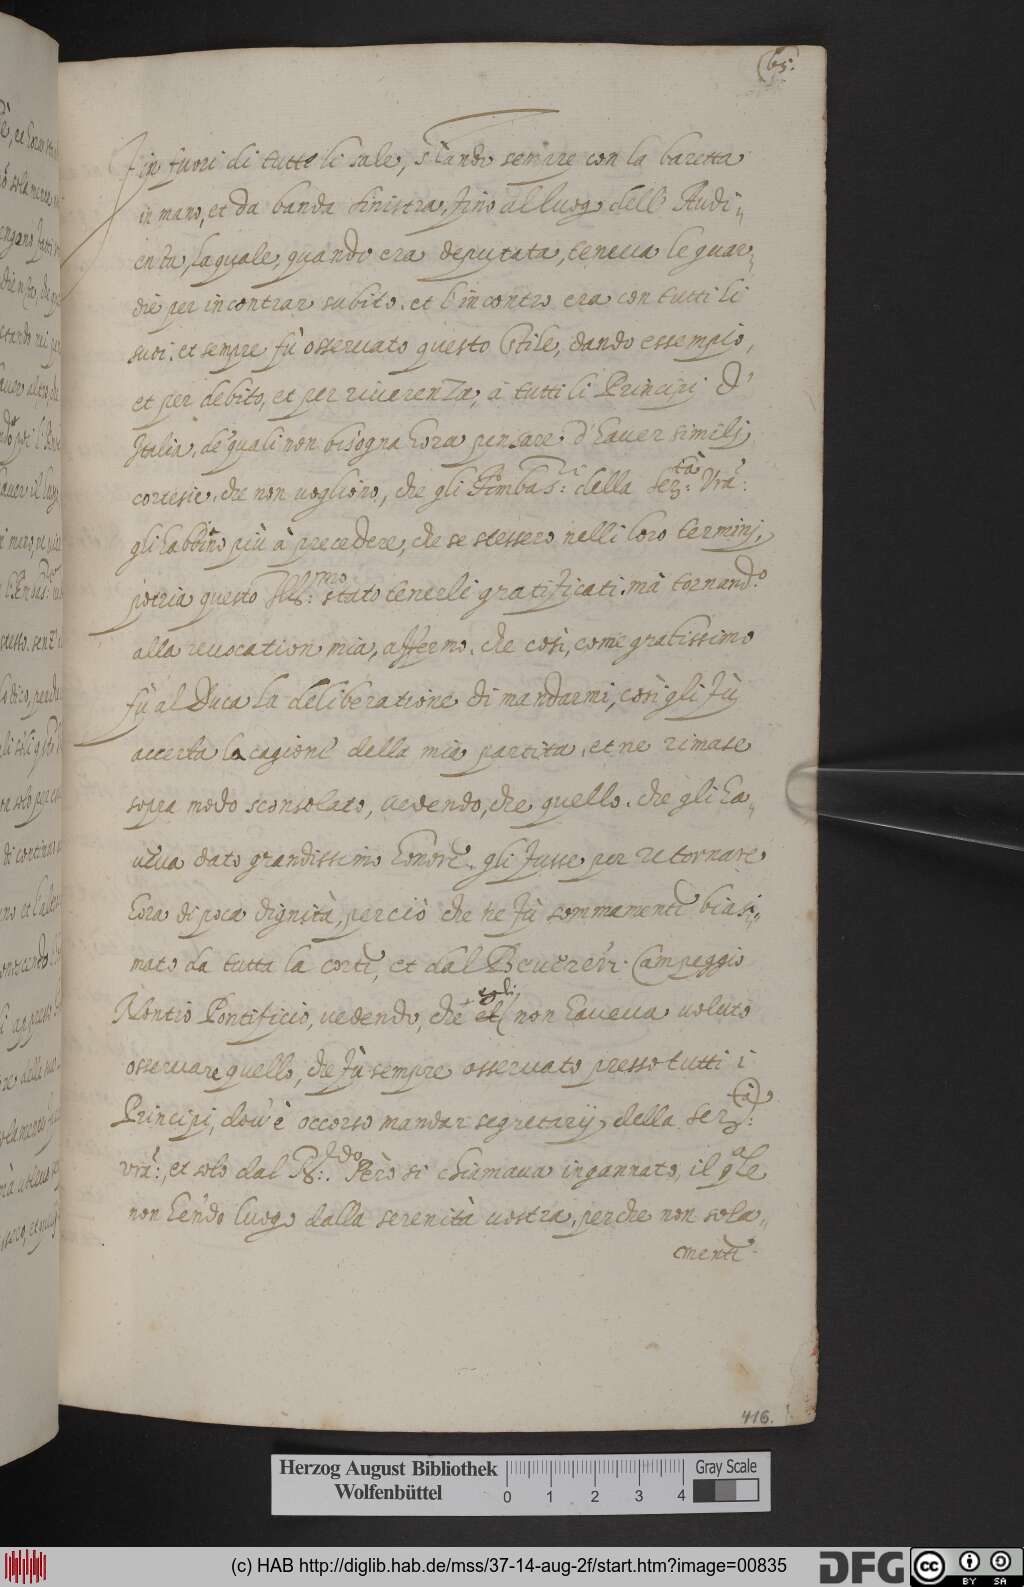 65.
in fuori di tutte le sale, stando sempre con la baretta
in mano, et da banda sinistra, fino al luogo dell' Audi„
enza, la quale, quando era deputata, teneua le guar„
die per incontrar subito, et l'incontro era con tutti li
suoi, et sempre fù osseruato questo stile, dando essempio,
et per debito, et per riuerenza, à tutti li Principi d'
Italia, de' quali non bisogna hora pensare d'hauer simili
cortesie, che non vogliono, che gli Ambas.ri della Ser.tà Vrã:
gli habbino più à precedere, che se stessero nelli loro termini,
potria questo Ill.mo stato tenerli gratificati, mà tornando
alla reuocation mia, affermo, che così, come gratissimo
fù al Duca la deliberatione di mandarmi, così gli fù
accerba la cagione della mia partita, et ne rimase
sopra modo sconsolato, vedendo, che quello, che gli ha„
ueua dato grandissimo honore, gli fusse per ritornare
hora di poca dignità, perciò che ne fù sommamente biasi„
mato da tutta la corte, et dal Reuerẽn: Campeggio
Nontio Pontificio, vedendo, che egli non haueua voluto
osseruare quello, che fù sempre osseruato presso tutti i
Principi, dou' è occorso mandar segretarij della Ser.tà
vrã:, et solo dal Però si chiamaua ingannato, il qle
non hẽndo luogo dalla serenità vostra, perche non sola„
mente
416.
Herzog August Bibliothek
Wolfenbüttel
0 1 2 3 4
Gray Scale
(c) HAB http://diglib.hab.de/mss/37-14-aug-2f/start.htm?image=00835
DFG
cc BY SA